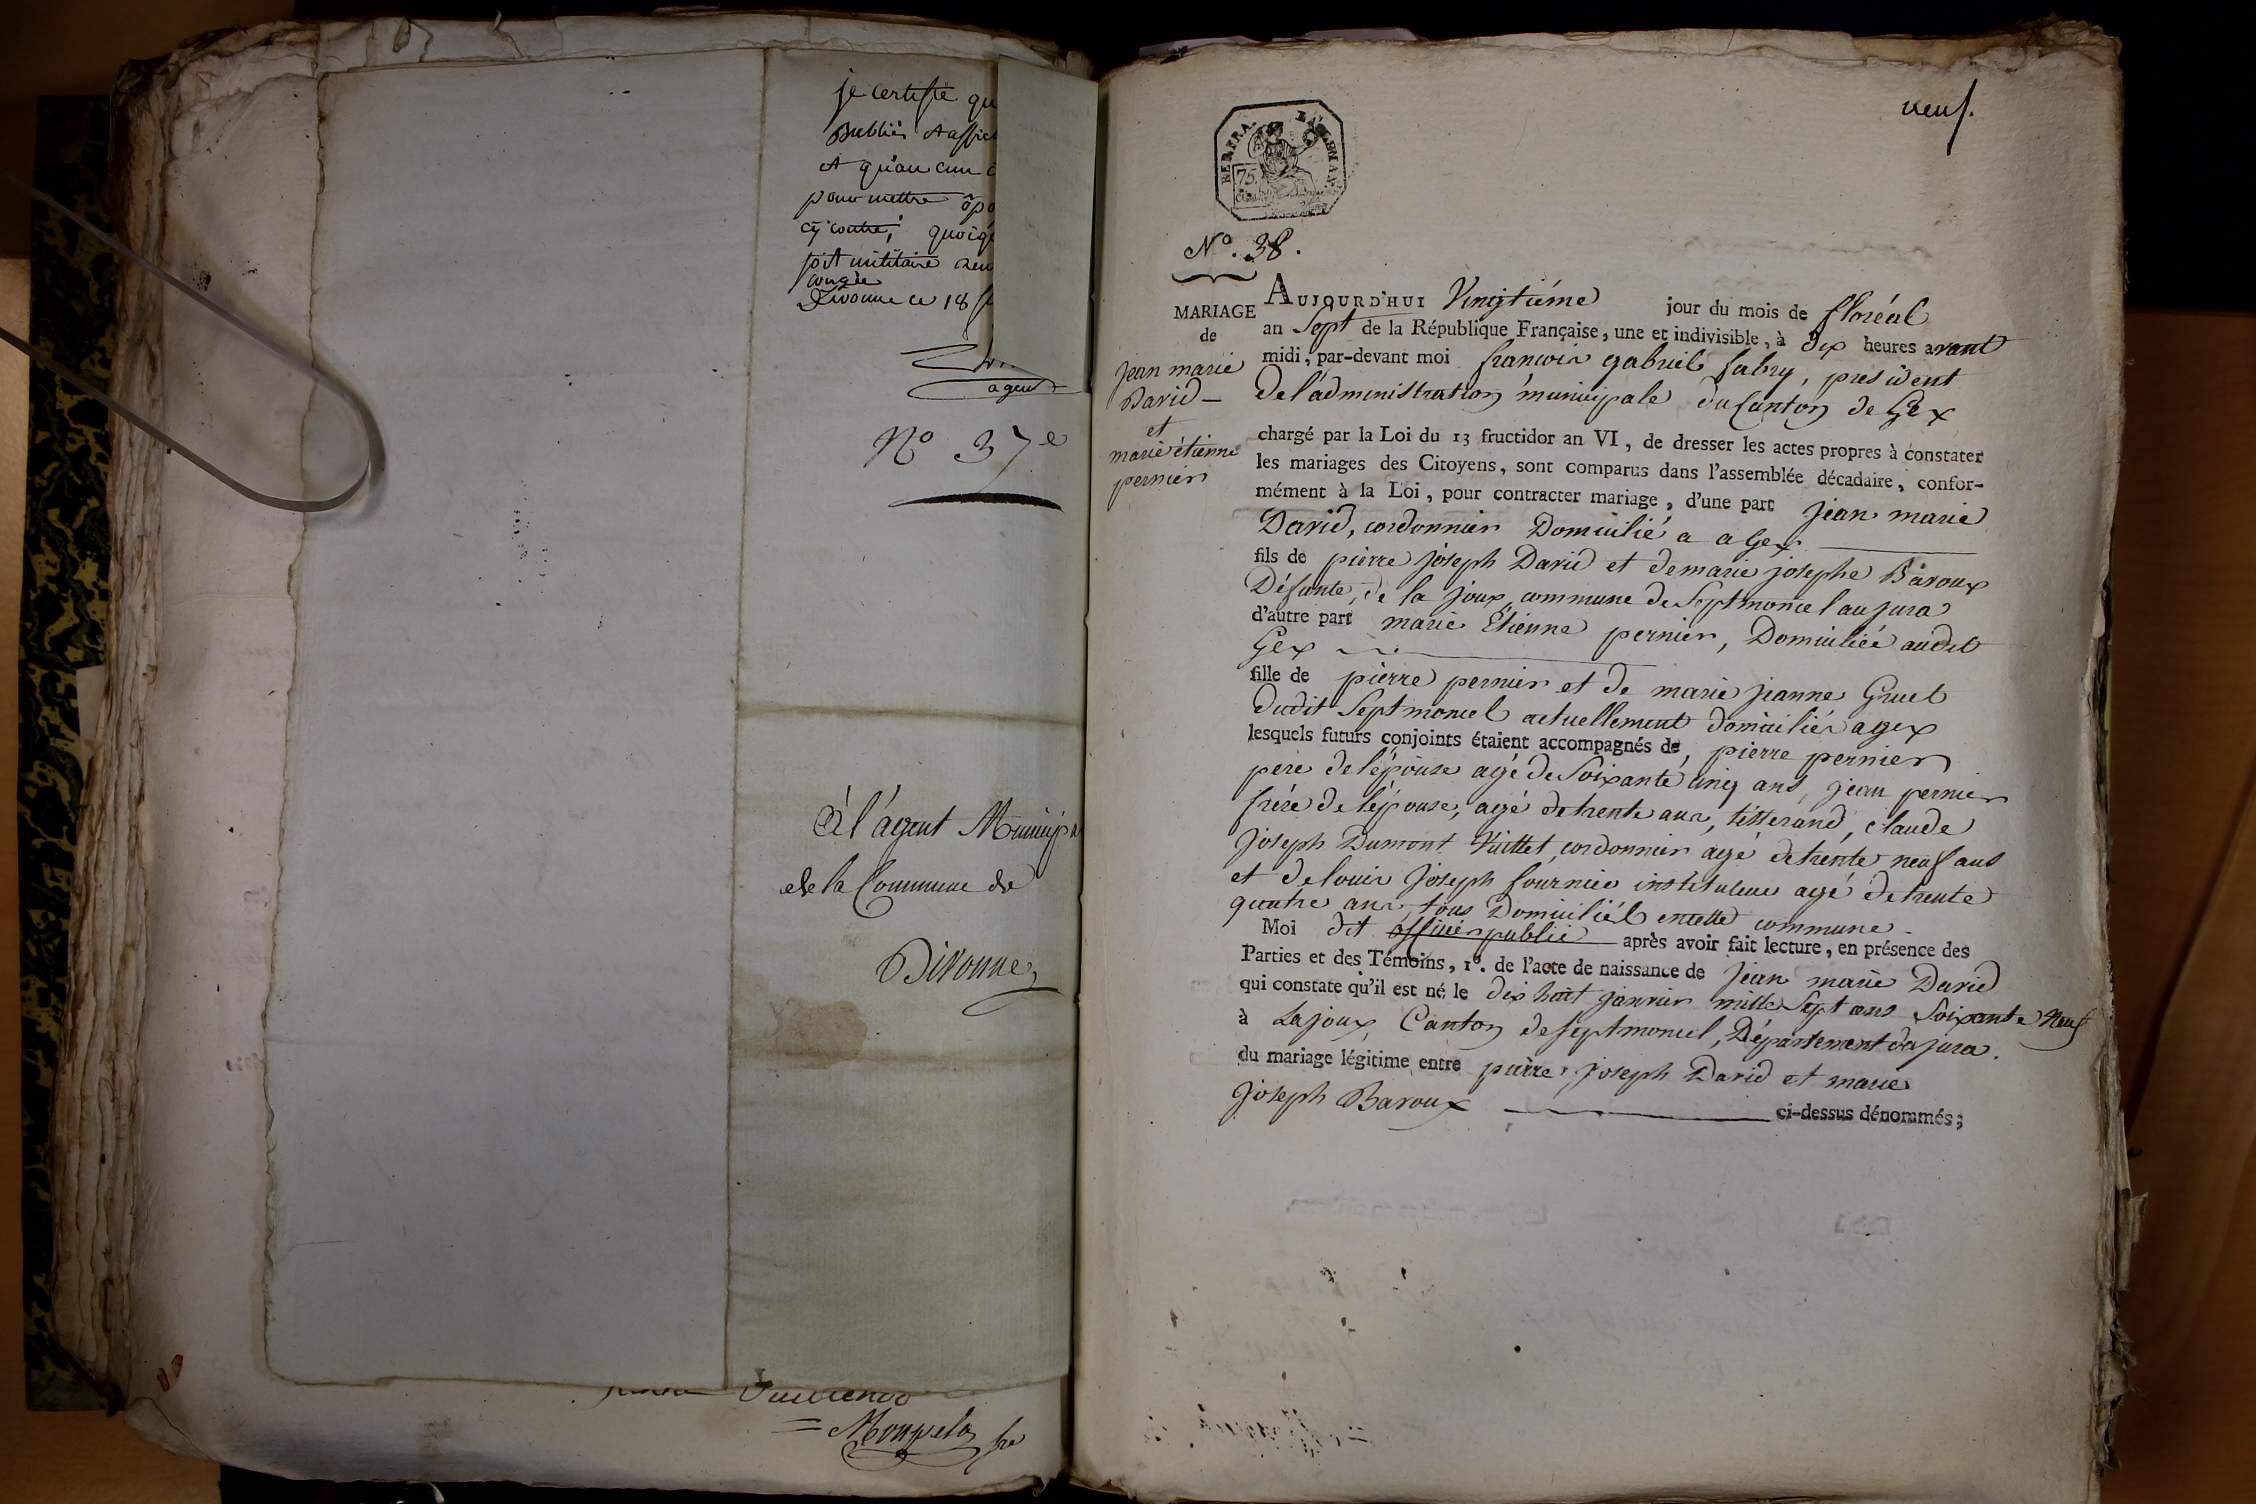 je certifie qu
Publiés et affic
et qu'aucun
pour mettre opo
cy contre, quoiqu
soit militaire
congée
Divonne ce 18
agent
N° 37e
à l'agent Municipa
de la Commune de
Divonne
= Monpela
neuf.
75
N°. 38.
MARIAGE
de
jean marie
David
et
marie étienne
pernier
AUJOURD'HUI Vingtiéme jour du mois de floréal
an Sept de la République Française, une et indivisible, à dix heures avant
midi, par-devant moi francois gabriel fabry, president
de l'administration municipale du Canton de Gex
chargé par la Loi du 13 fructidor an VI, de dresser les actes propres à constater
les mariages des Citoyens, sont comparus dans l'assemblée décadaire, confor-
mément à la Loi, pour contracter mariage, d'une part jean marie
David, cordonnier Domicilié a a Gex
fils de pierre joseph David et de marie josephe Baroux
Défunte, de la joux commune de Septmoncel au jura
d'autre part marie Étienne pernier, Domiciliée audit
Gex
fille de pierre pernier et de marie jeanne Gruet
dudit Septmoncel actuellement domiciliés a gex
lesquels futurs conjoints étaient accompagnés de pierre pernier
pere de l'épouse agé de Soixante cinq ans, jean pernier
frére de l'épouse, agé de trente ans, tisserand, claude
joseph Dumont Vuittet, cordonnier agé de trente neuf ans
et de louis joseph fournier instituteur agé de trente
quatre ans, tous Domiciliés en cette commune
Moi dit officier public après avoir fait lecture, en présence des
Parties et des Témoins, 1°. de l'acte de naissance de jean marie David
qui constate qu'il est né le dix huit janvier mille Sept cens Soixante Neuf
à Lajoux, Canton de septmoncel, Département du jura.
du mariage légitime entre pierre joseph David et marie
joseph Baroux ci-dessus dénommés;